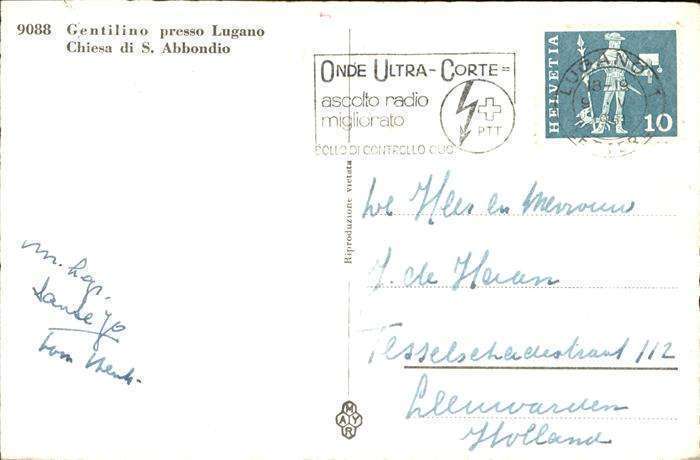 9088 Gentilino presso Lugano
Chiesa di S. Abbondio
ONDE ULTRA-CORTE=
ascolto radio
migliorato
PTT
BOLLO DI CONTROLLO
HELVETIA
10
LUGANO 1
Riproduzione vietata
De Heer en Mevrouw
J. de Haan
Tesselschadestraat 112
Leeuwarden
Holland
m. hgr.
MAYR